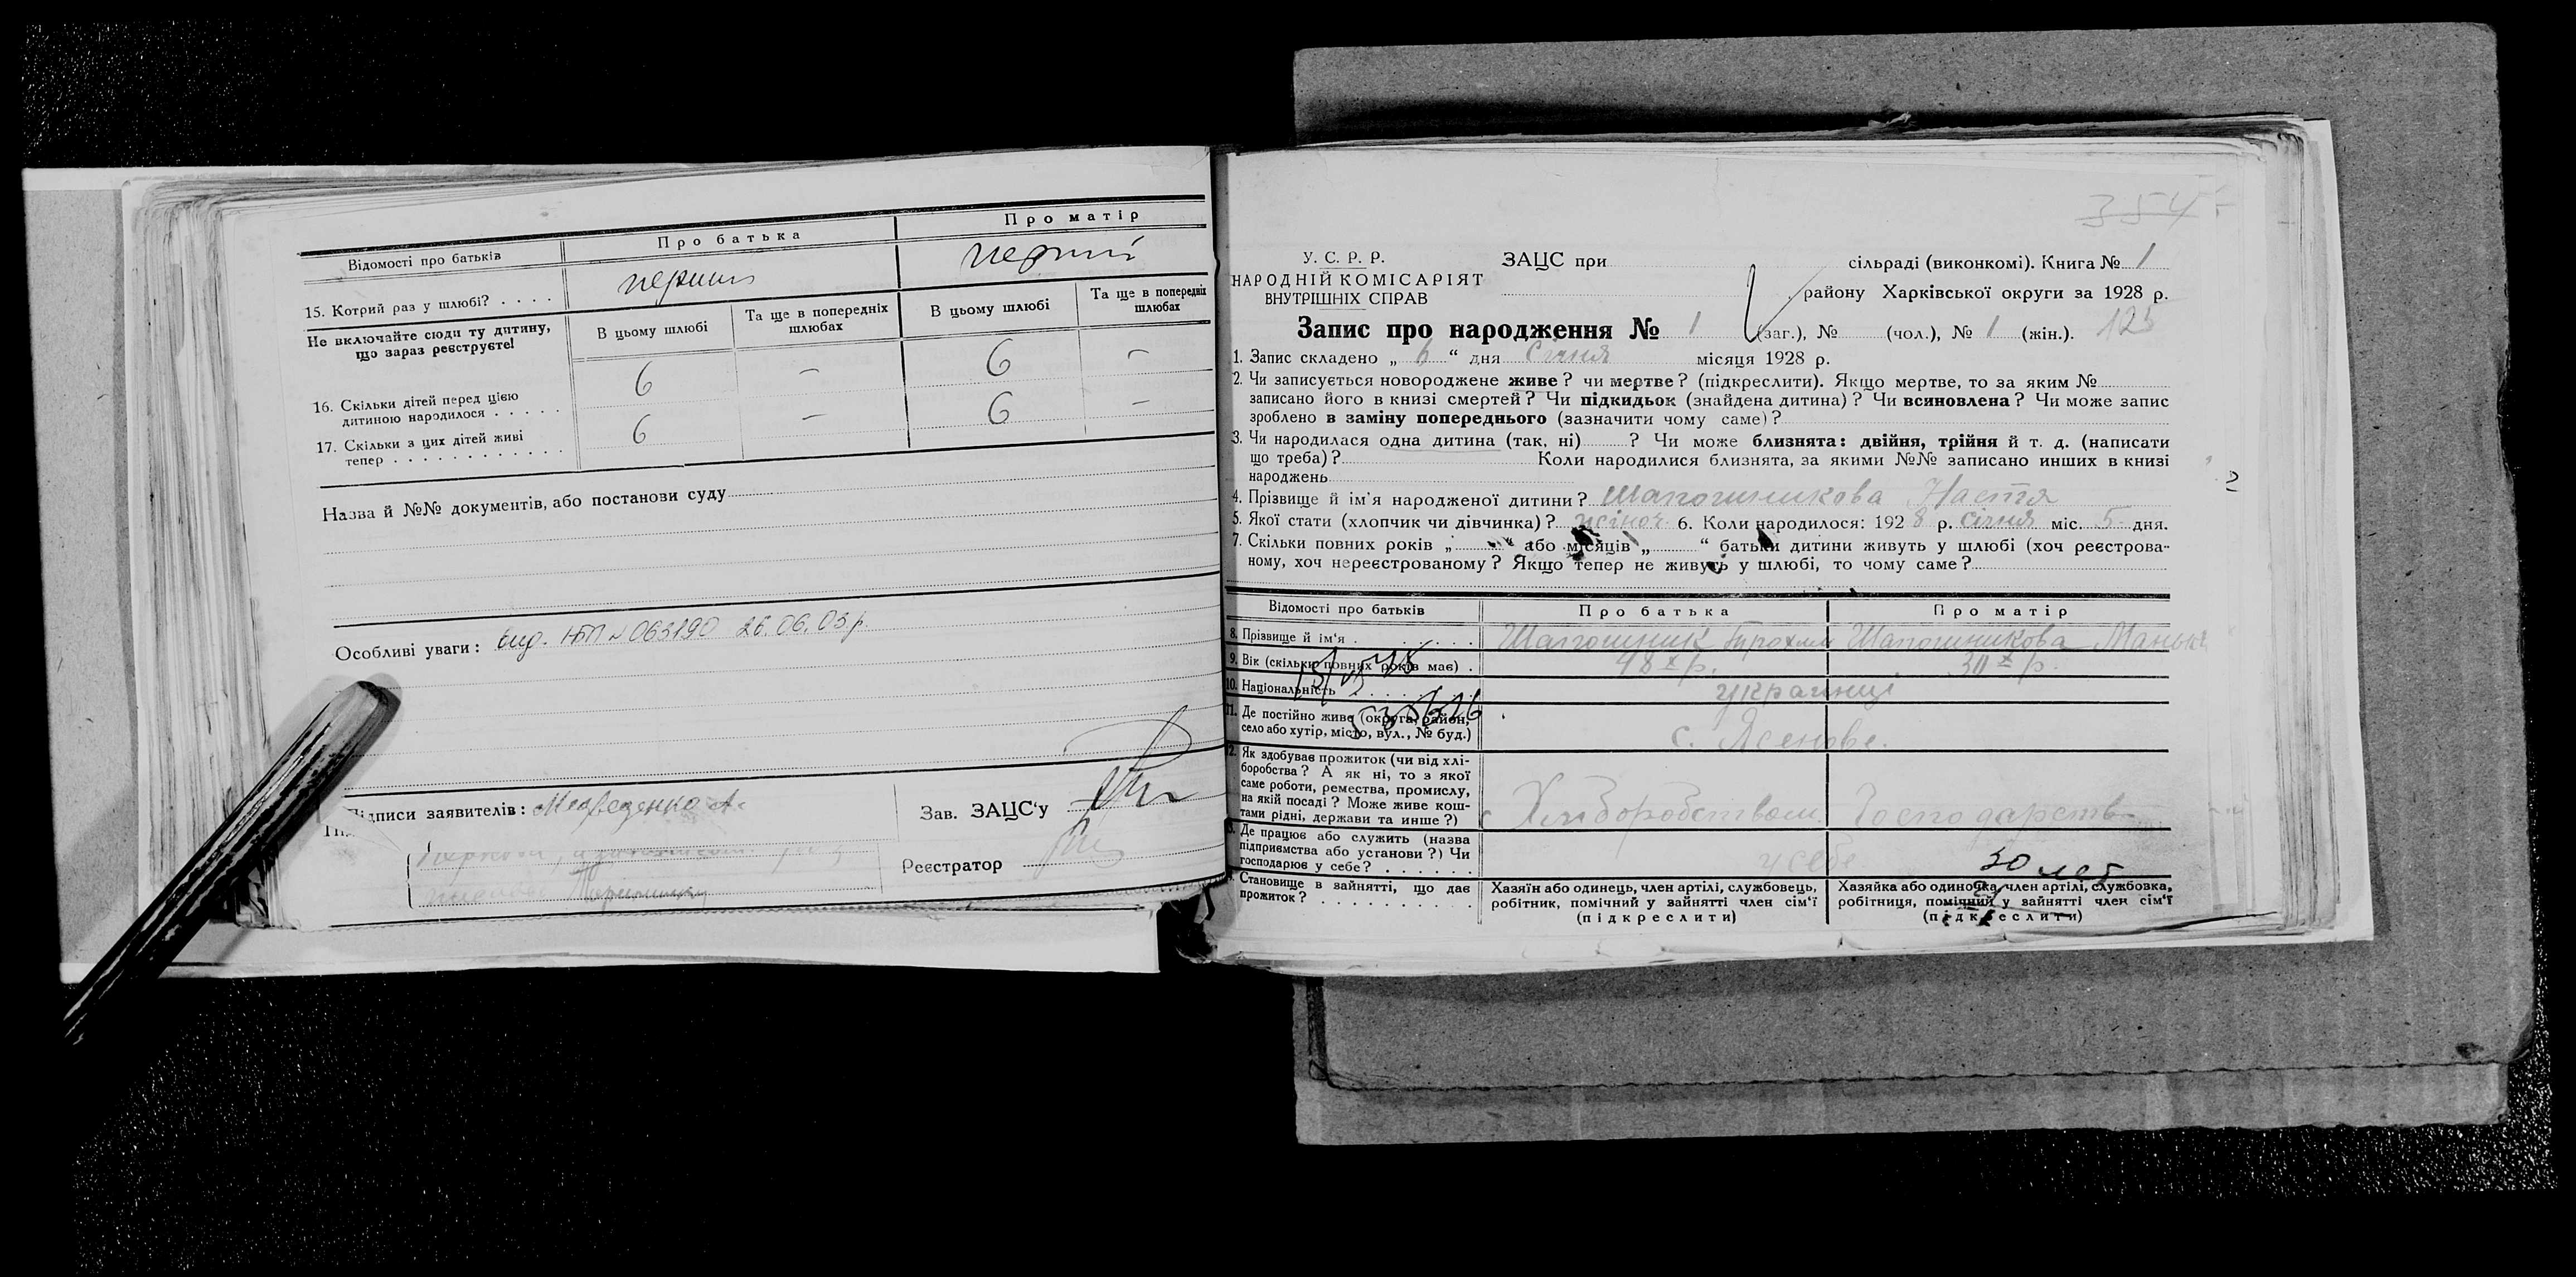 Відомості про батьків
Про батька
Про матір
15. Котрий раз у шлюбі? . . . .
перший
перший
Не включайте сюди ту дитину,
що зараз реєструєте!
В цьому шлюбі
Та ще в попередніх
шлюбах
В цьому шлюбі
Та ще в попередніх
шлюбах
16. Скільки дітей перед цією
дитиною народилося . . . . .
6
–
6
–
17. Скільки з цих дітей живі
тепер . . . . . . . . . . . .
6
–
6
–
Назва й №№ документів, або постанови суду
Особливі уваги: вид. №063190 26.06.03р.
Підписи заявителів: Медведенко А.
Зав. ЗАЦС'у
Реєстратор
354
У. С. Р. Р.
НАРОДНІЙ КОМІСАРІЯТ
ВНУТРІШНІХ СПРАВ
ЗАЦС при сільраді (виконкомі). Книга № 1
району Харківської округи за 1928 р.
Запис про народження № 1 (заг.), № (чол.), № 1 (жін.). 125
1. Запис складено „ 6 “ дня Січня місяця 1928 р.
2. Чи записується новороджене живе? чи мертве? (підкреслити). Якщо мертве, то за яким №
записано його в книзі смертей? Чи підкидьок (знайдена дитина)? Чи всиновлена? Чи може запис
зроблено в заміну попереднього (зазначити чому саме)?
3. Чи народилася одна дитина (так, ні) ? Чи може близнята: двійня, трійня й т. д. (написати
що треба)? Коли народилися близнята, за якими №№ записано инших в книзі
народжень
2
4. Прізвище й ім'я народженої дитини? Шапошникова Настя
5. Якої стати (хлопчик чи дівчинка)? жіноч 6. Коли народилося: 192 8 р. січня міс. 5 дня.
7. Скільки повних років „ “ або місяців „ “ батьки дитини живуть у шлюбі (хоч реєстрова-
ному, хоч нереєстрованому? Якщо тепер не живуть у шлюбі, то чому саме?
Відомості про батьків
Про батька
Про матір
8. Прізвище й ім'я . . . . . . . . .
Шапошник Трохим
Шапошникова Манька
9. Вік (скільки повних років має) .
48 х р.
30 х р.
10. Національність . . . . . . . . .
українці
11. Де постійно живе (округа, район,
село або хутір, місто, вул., № буд.)
с. Ясенове.
12. Як здобуває прожиток (чи від хлі-
боробства? А як ні, то з якої
саме роботи, ремества, промислу,
на якій посаді? Може живе кош-
тами рідні, держави та инше?)
Хліборобством
Господарств
13. Де працює або служить (назва
підприємства або установи?) Чи
господарює у себе? . . . . . .
у себе
30 лет
14. Становище в зайнятті, що дає
прожиток? . . . . . . . . . .
Хазяїн або одинець, член артілі, службовець,
робітник, помічний у зайнятті член сім'ї
(підкреслити)
Хазяйка або одиночка, член артілі, службовка,
робітниця, помічний у зайнятті член сім'ї
(підкреслити)